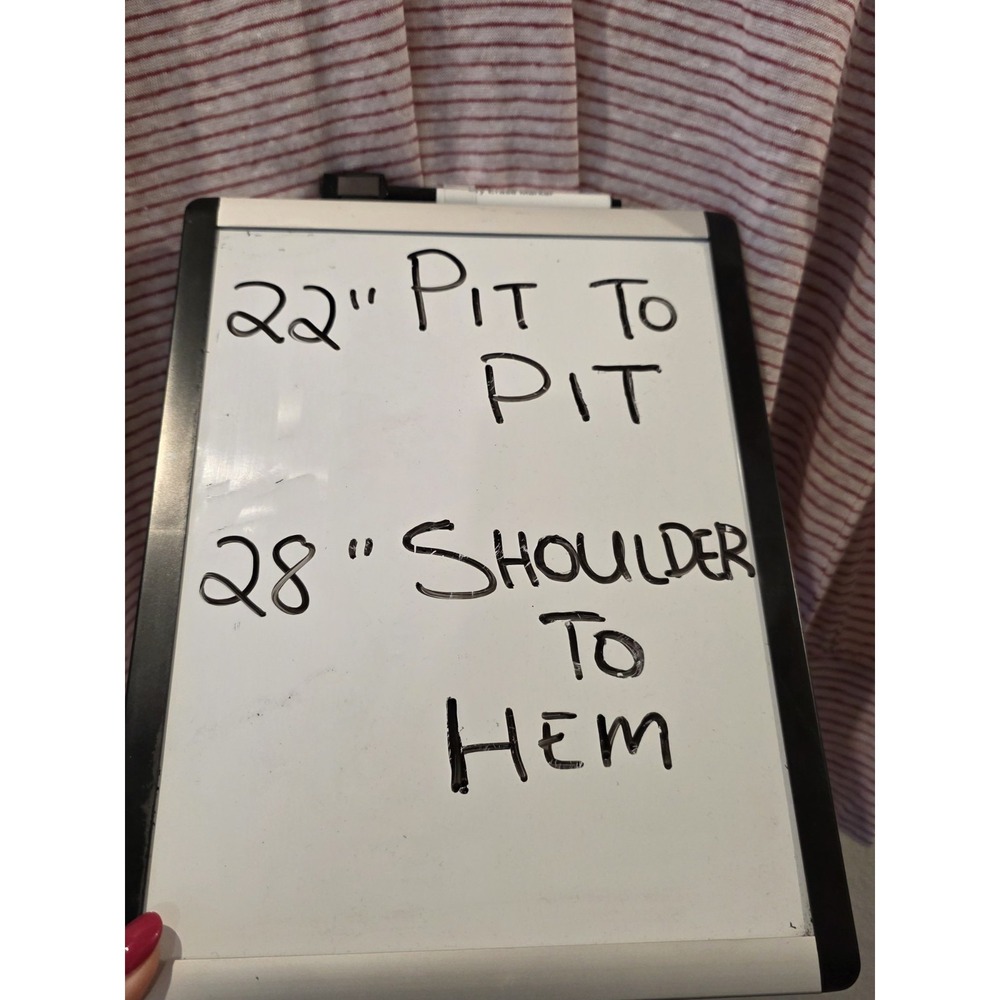 22" PIT TO
PIT
28" SHOULDER
TO
HEM